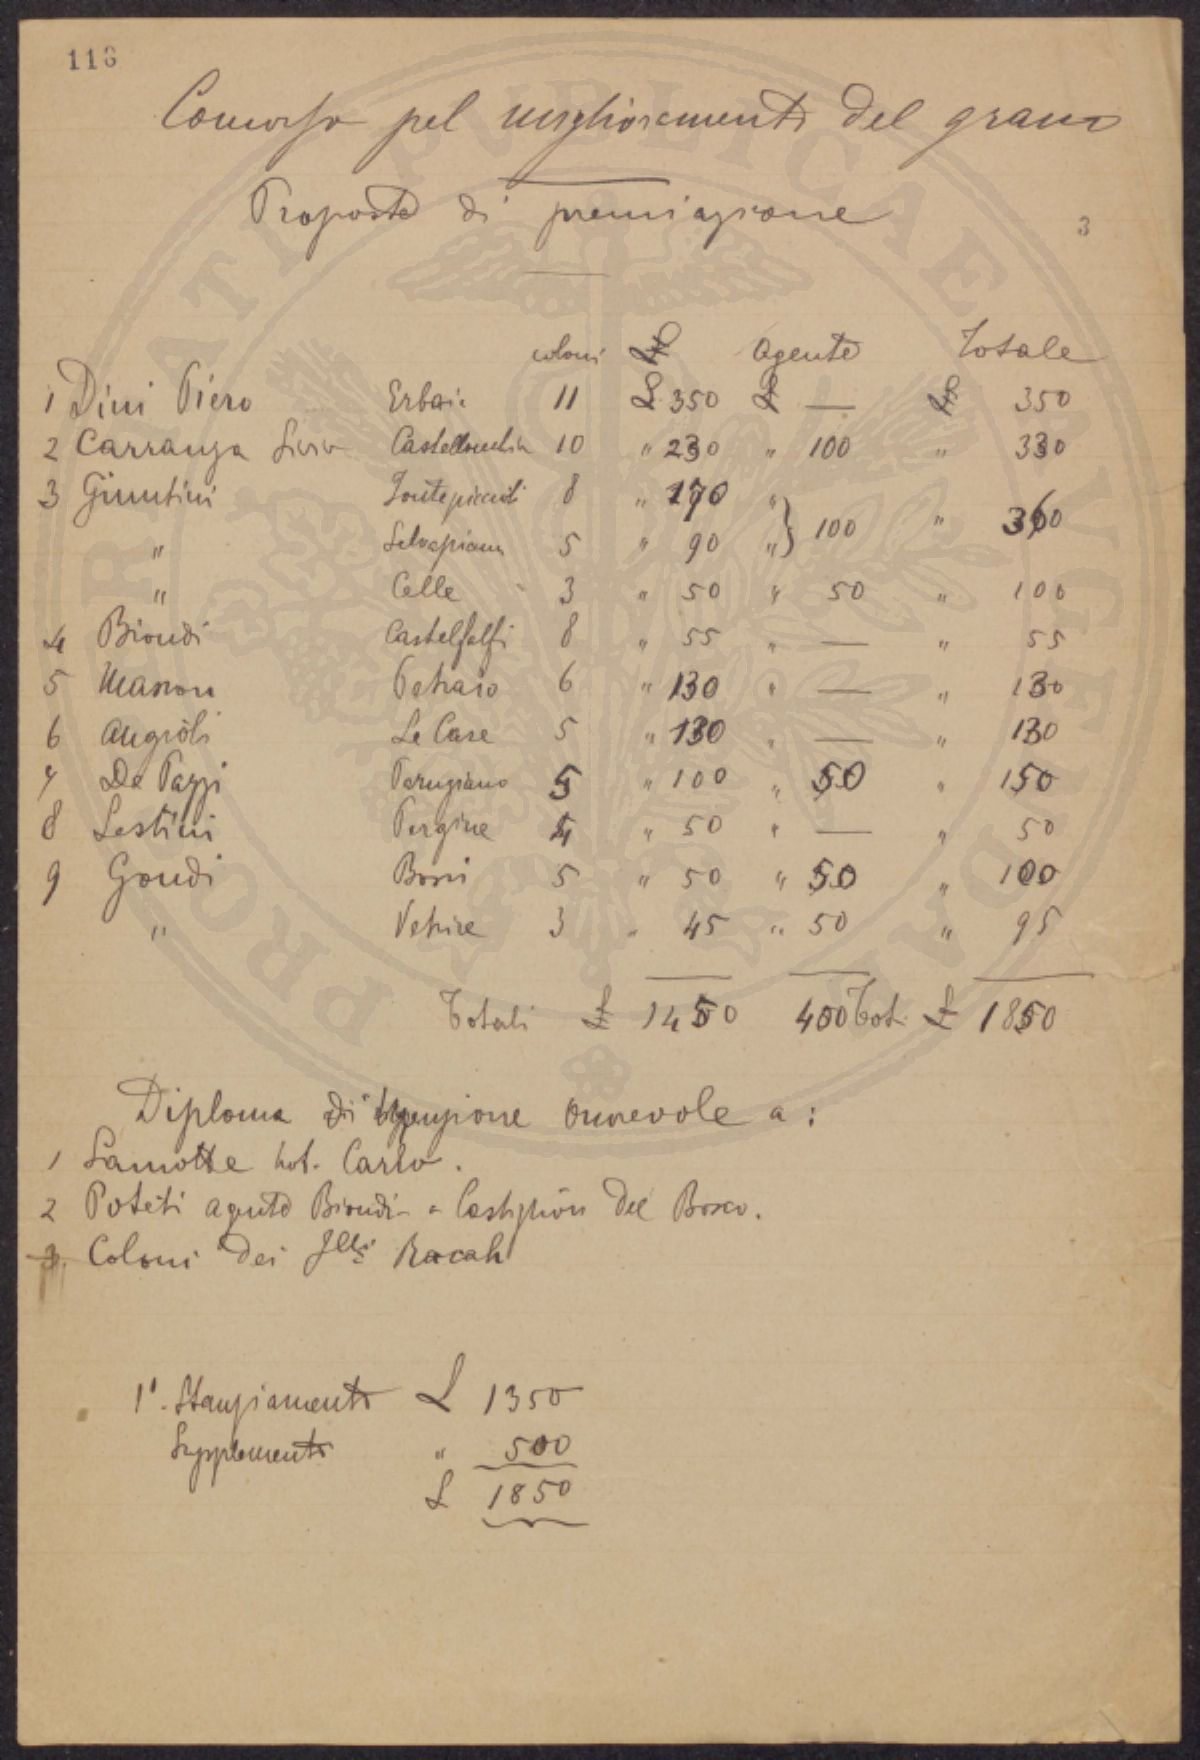 116
Concorso pel miglioramento del grano
Proposte di premiazione
3
coloni agente Totale
1 Dini Piero Erbaia 11 £ 350 £ — 350
2 Carranza Livio 10 " 230 " 100 " 330
3 Giuntini 8 " 170 "
" Selvapiana 5 " 90 " } 100 " 360
" Celle 3 " 50 " 50 " 100
4 Biondi Castelfalfi 8 " 55 " — " 55
5 Masson Petraio 6 " 130 " — " 130
6 Angioli Le Case 5 " 130 " — " 130
7 De Pazzi Parugiano 5 " 100 " 50 " 150
8 Sestini Pergine 4 " 50 " — " 50
9 Gondi Bossi 5 " 50 " 50 " 100
" Vetrice 3 " 45 " 50 " 95
Totali £ 1450 400 Tot. £ 1850
Diploma di menzione onorevole a:
1 Lamotte not. Carlo.
2 Poteti agente Biondi a Castiglion del Bosco.
3 Coloni dei flli Racah
1° Stanziamento £ 1350
Supplemento " 500
£ 1850
PROCURATI PUBLICAE